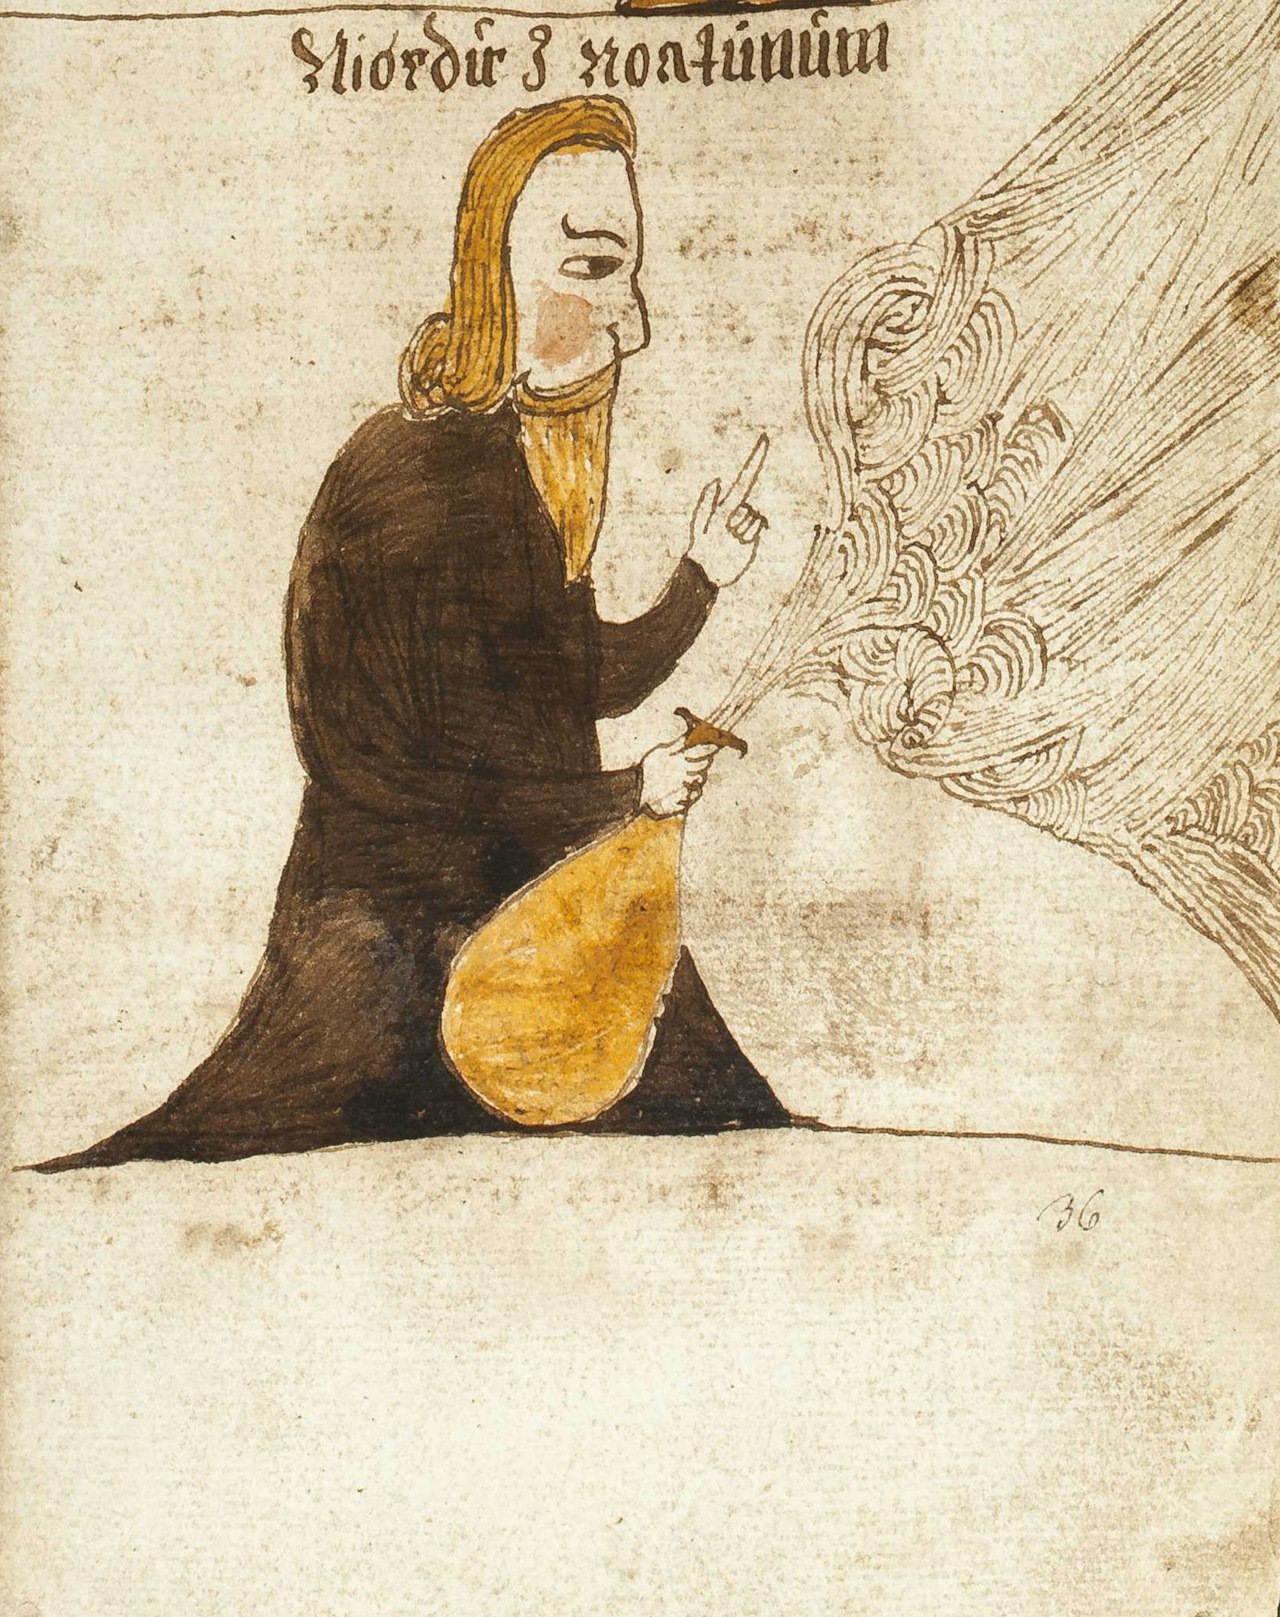 Niordur J noatunum
36